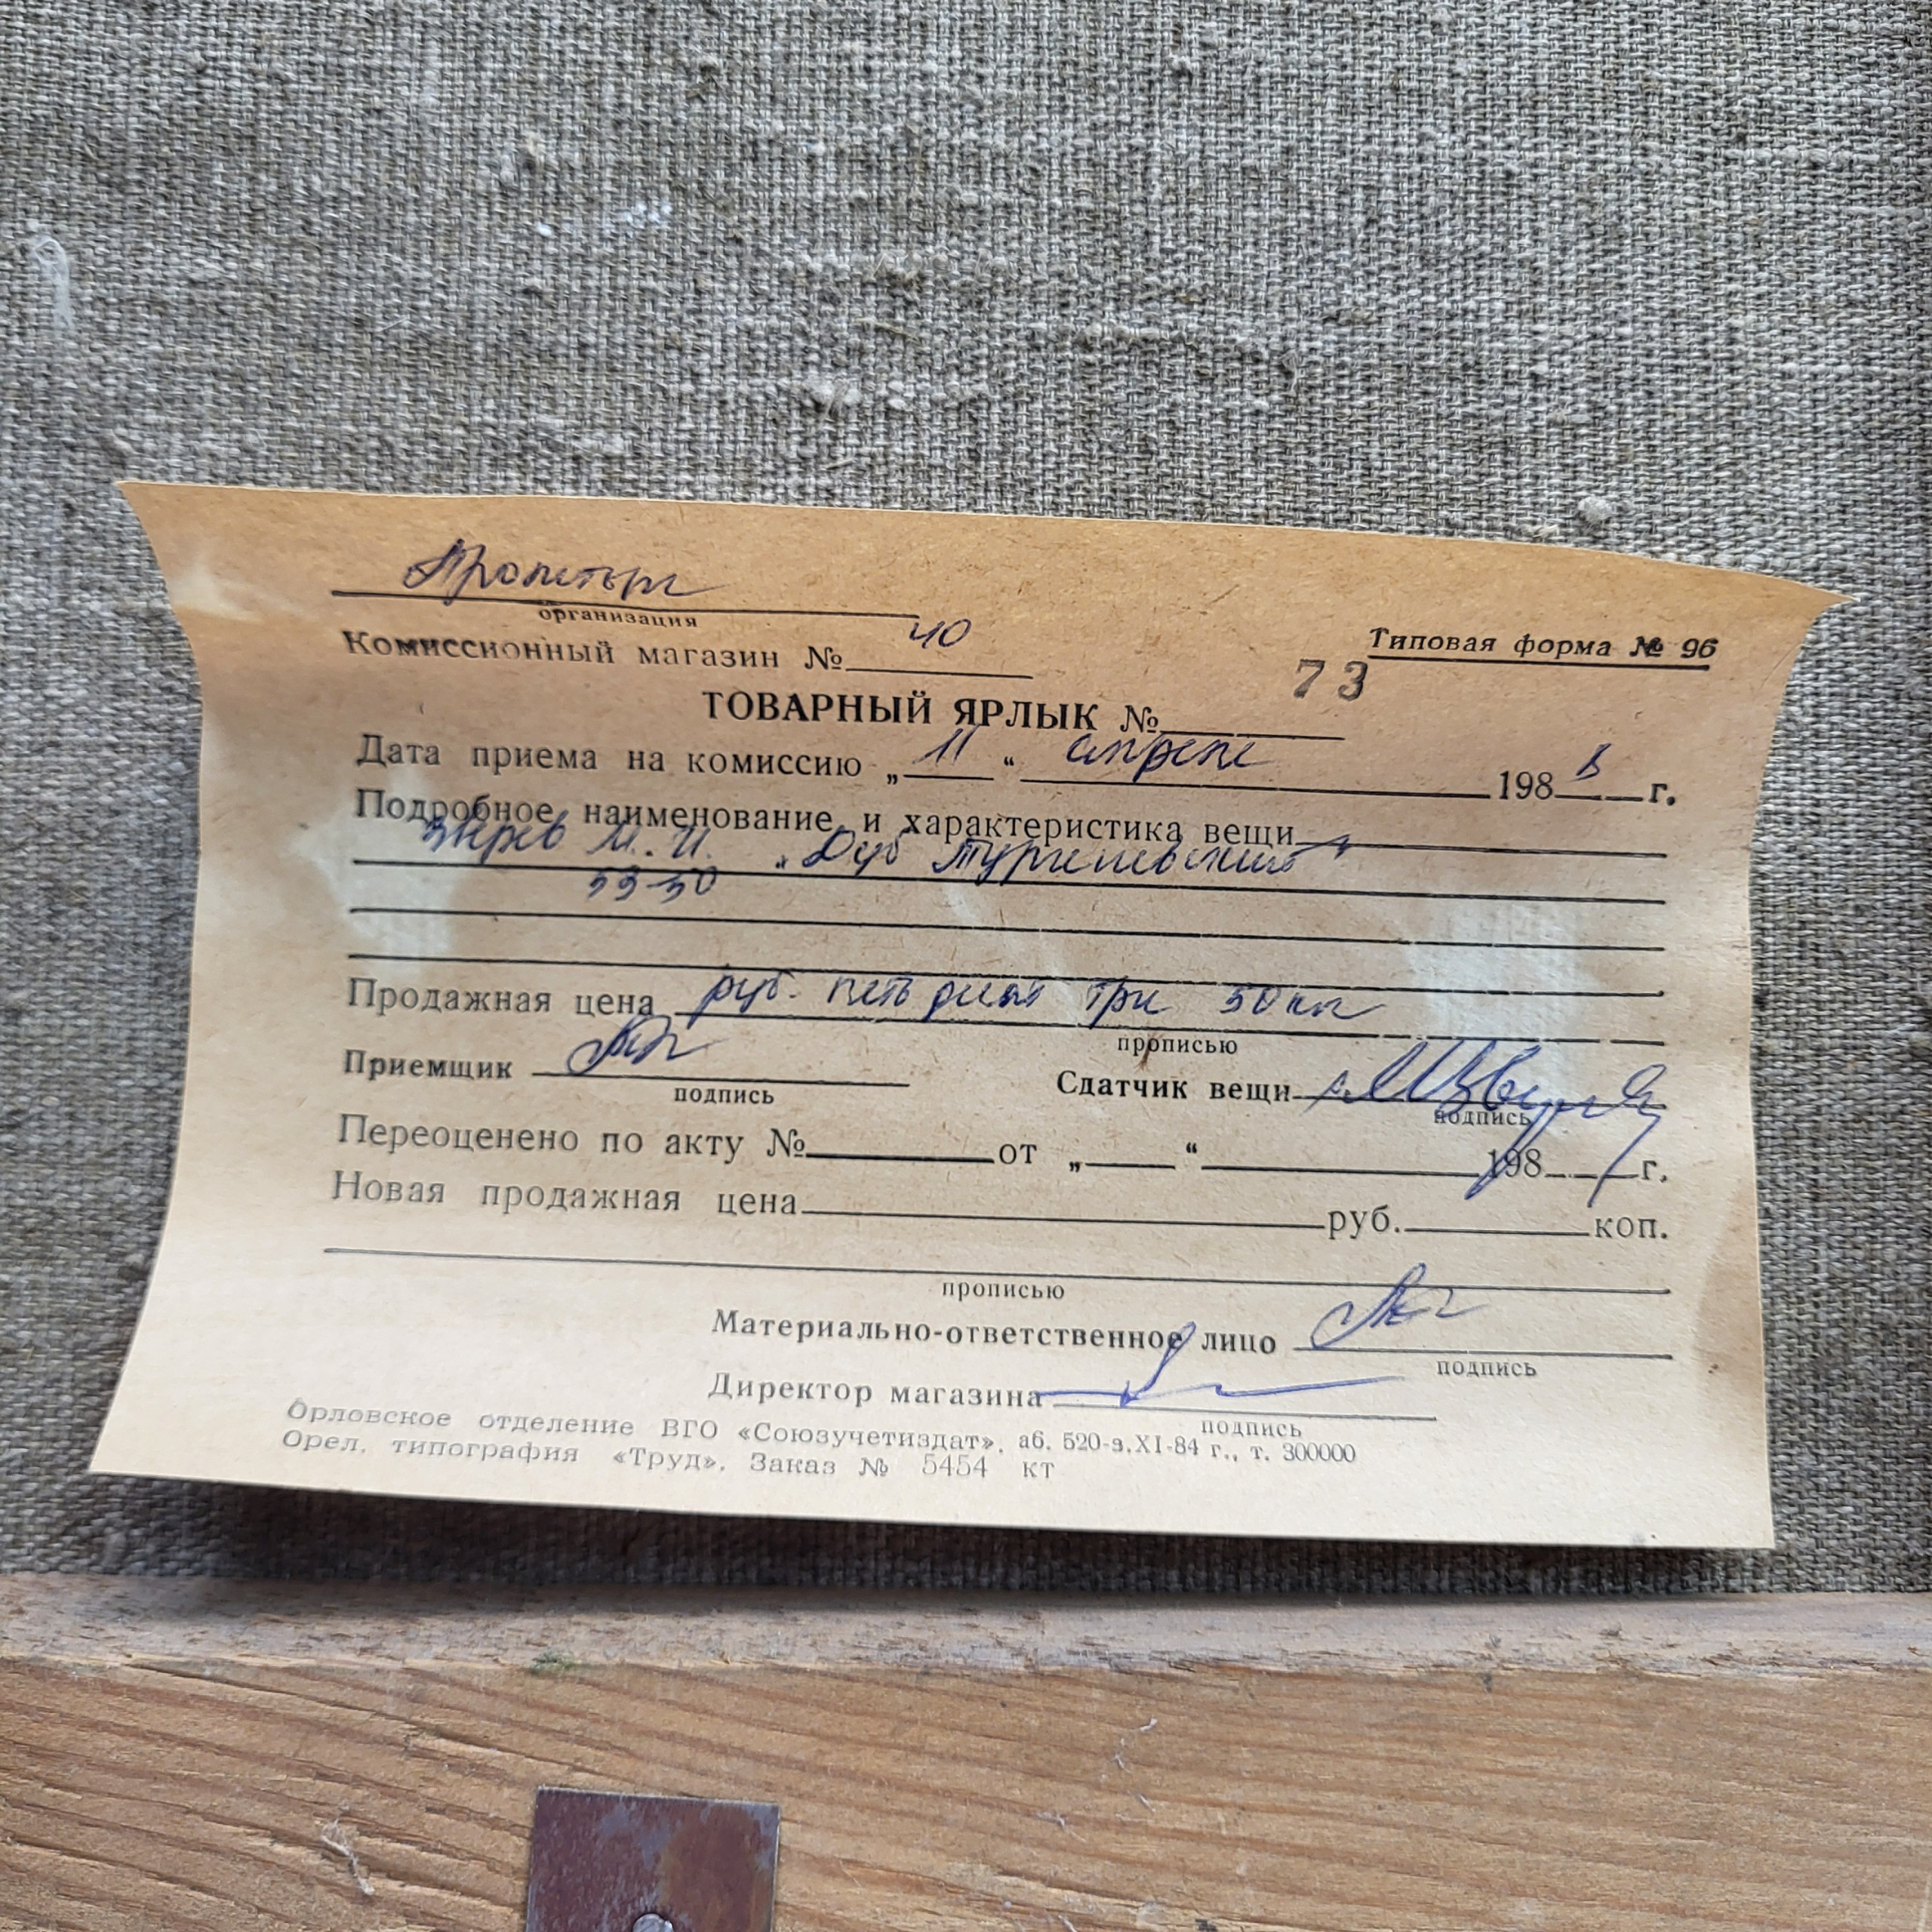 Промторг
организация
Комиссионный магазин № 40
Типовая форма № 96
ТОВАРНЫЙ ЯРЛЫК № 73
Дата приема на комиссию „ 11 “ апреля 198 8 г.
Подробное наименование и характеристика вещи
Зверев М.И. „Дуб Тургеневский"
53-50
Продажная цена руб. пять десят три 50 коп
прописью
Приемщик
подпись
Сдатчик вещи
подпись
Переоценено по акту № от „ “ 198 г.
Новая продажная цена руб. коп.
прописью
Материально-ответственное лицо
подпись
Директор магазина
подпись
Орловское отделение ВГО «Союзучетиздат», аб. 520-э.XI-84 г., т. 300000
Орел, типография «Труд». Заказ № 5454 кт